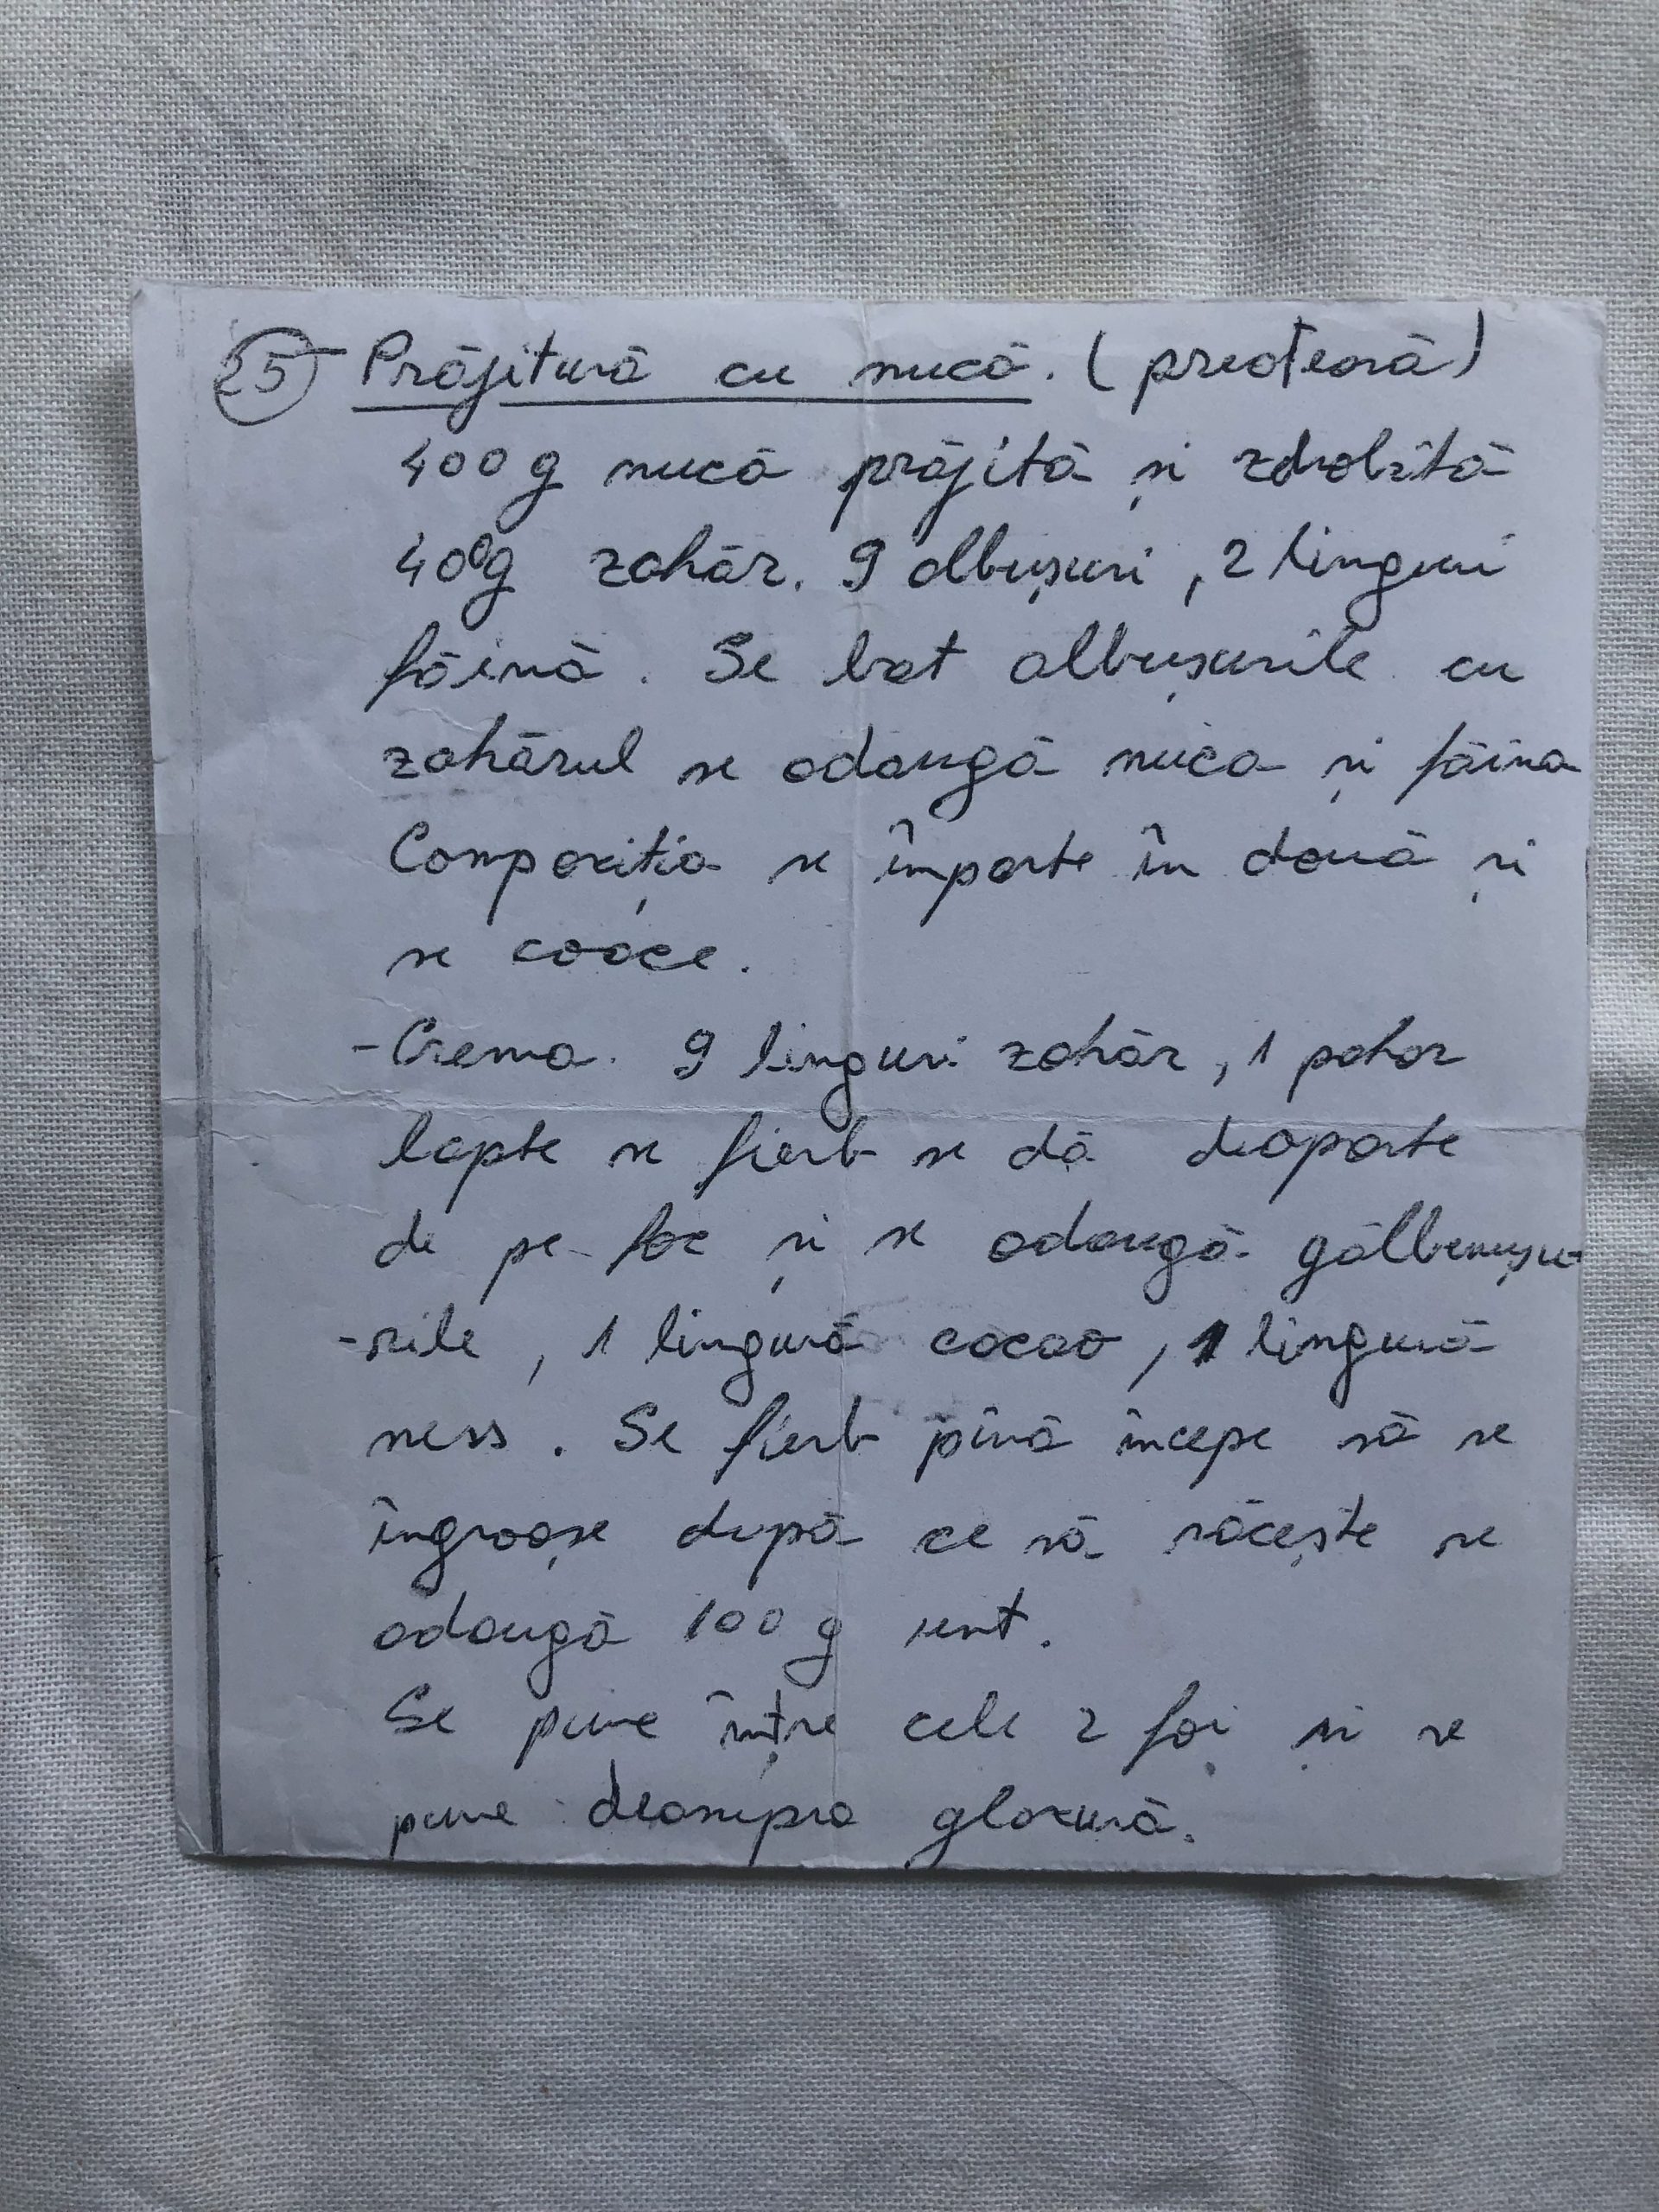 25 Prăjitură cu nucă. (preoteasă)
400 g nucă prăjită și zdrobită
400g zahăr. 9 albușuri, 2 linguri
făină. Se bat albușurile cu
zahărul se adaugă nuca și făina
Compoziția se împarte în două și
se coace.
-Crema. 9 linguri zahăr, 1 pahar
lapte se fierb se dă deoparte
de pe foc și se adaugă gălbenușu-
-rile, 1 lingură cacao, 1 lingură
ness. Se fierb pînă începe să se
îngroașe după ce să răcește se
adaugă 100 g unt.
Se pune între cele 2 foi și se
pune deasupra glazură.